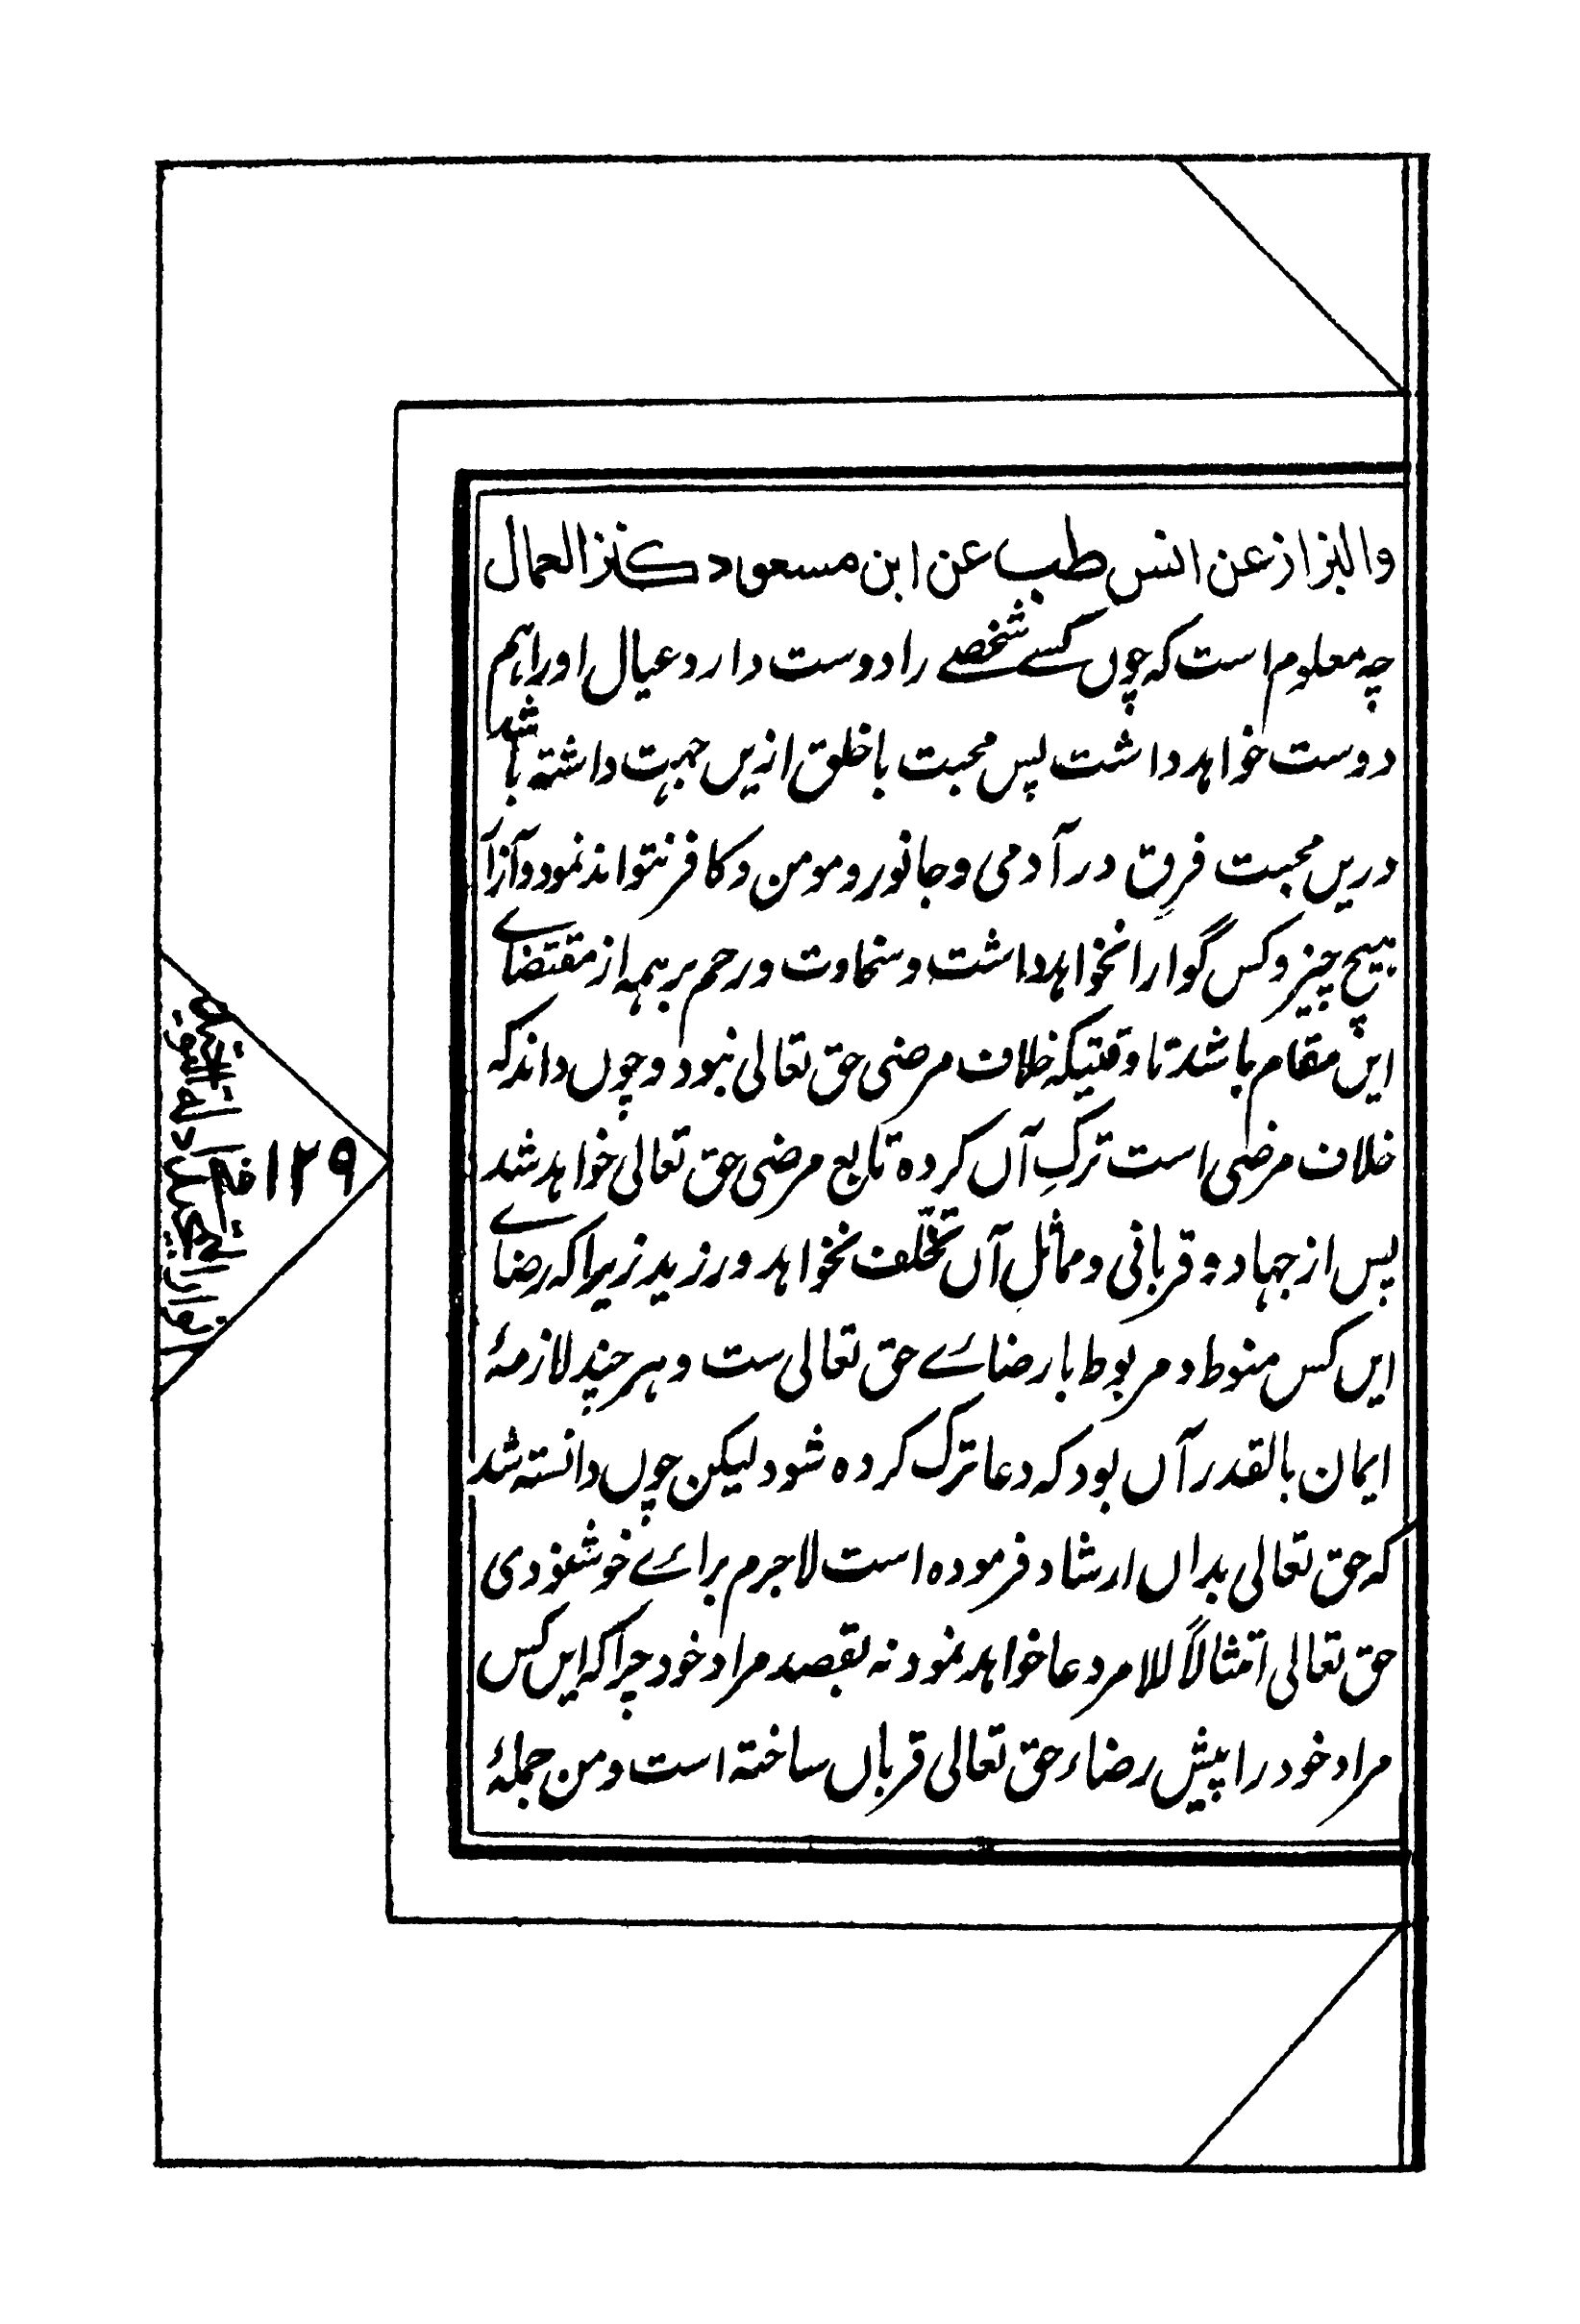 والبزاز عن انس طب عن ابن مسعود کنز العمال
چه معلوم است که چوں کسے شخصے را دوست دارد عیال او را ہم
دوست خواہد داشت پس محبت با خلق ازیں جہت داشته باشد
دریں محبت فرق در آدمی و جانور و مومن و کافر نتواند نمود و آزار
ہیچ چیز و کس گوارا نخواہد داشت و سخاوت و رحم بر ہمہ از مقتضاے
ایں مقام باشد تا وقتیکه خلاف مرضی حق تعالی نبود و چوں داند که
خلاف مرضی است ترکِ آں کرده تابع مرضی حق تعالی خواہد شد
پس از جہاد و قربانی و مماثلِ آں تخلّف نخواہد ورزید زیرا که رضاے
ایں کس منوط و مربوط با رضاے حق تعالی ست و ہر چند لازمهٔ
ایمان بالقدر آں بود که دعا ترک کرده شود لیکن چوں دانسته شد
که حق تعالی بداں ارشاد فرموده است لاجرم براے خوشنودی
حق تعالی امتثالاً للامر دعا خواہد نمود نه بقصد مراد خود چرا که ایں کس
مراد خود را پیش رضاء حق تعالی قرباں ساخته است و من جملهٔ
۱۲۹